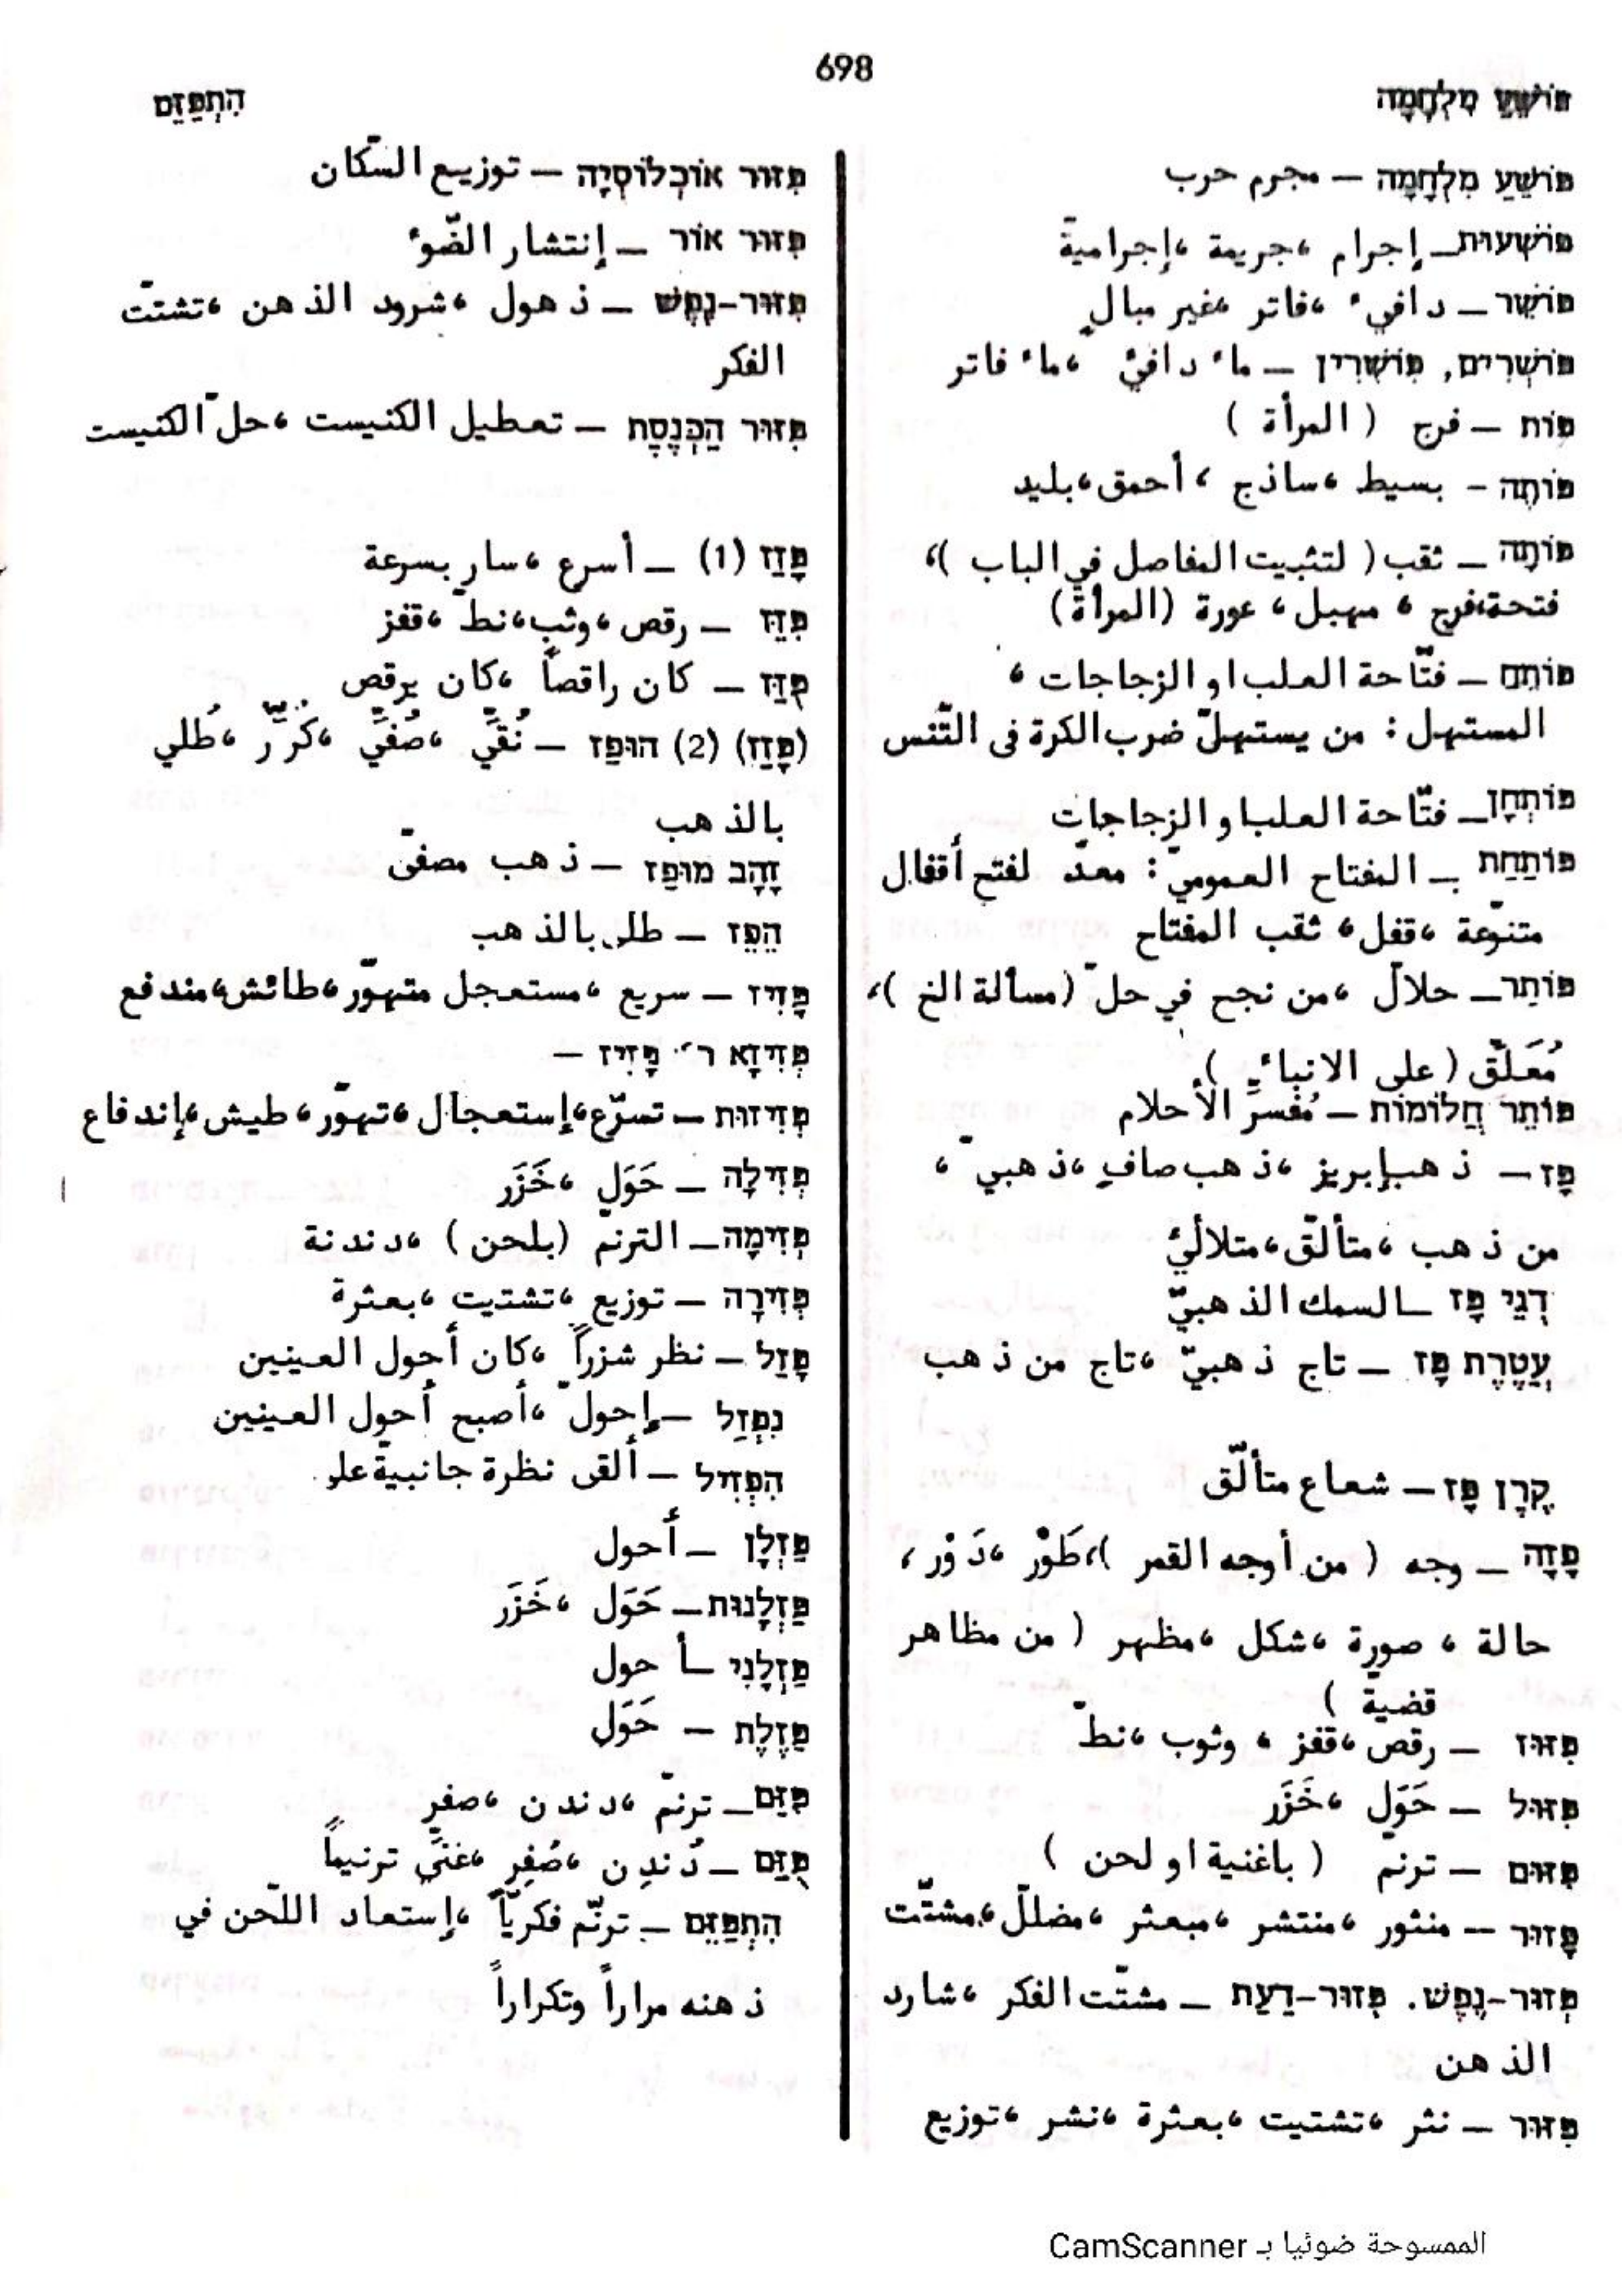 698
פּוֹשֵׁעַ מִלְחָמָה
הִתְפַּזֵּם
פּוֹשֵׁעַ מִלְחָמָה – مجرم حرب
פּוֹשְׁעוּת – إجرام ، جريمة ، إجراميةّ
פּוֹשֵׁר – دافيء ، فاتر ، غير مبالٍ
פּוֹשְׁרִים, פּוֹשְׁרִין – ماء دافئ ، ماء فاتر
פּוֹת – فرج ( المرأة )
פּוֹתֶה – بسيط ، ساذج ، أحمق ، بليد
פּוֹתָה – ثقب ( لتثبيت المفاصل في الباب )،
فتحة، فرج ، مهبل ، عورة (المرأة)
פּוֹתֵחַ – فتّاحة العلب او الزجاجات ،
المستهل : من يستهلّ ضرب الكرة فى التّنس
פּוֹתְחָן – فتّاحة العلب او الزجاجات
פּוֹתַחַת – المفتاح العموميّ : معدّ لفتح أقفال
متنوّعة ، قفل ، ثقب المفتاح
פּוֹתֵר – حلالّ ، من نجح في حلّ (مسألة الخ )،
مُعَلّق ( على الانباء )
פּוֹתֵר חֲלוֹמוֹת – مُفسرِّ الأحلام
פָּז – ذهب إبريز ، ذهب صافٍ ، ذهبيّ ،
من ذهب ، متألّق ، متلالئ
דְּגֵי פָּז – السمك الذهبيّ
עֲטֶרֶת פָּז – تاج ذهبيّ ، تاج من ذهب
קֶרֶן פָּז – شعاع متألّق
פָזָה – وجه ( من أوجه القمر )، طَوْر ، دَوْر ،
حالة ، صورة ، شكل ، مظهر ( من مظاهر
قضيةّ )
פִּזּוּז – رقص ، قفز ، وثوب ، نطّ
פִּזּוּל – حَوَل ، خَزَر
פִּזּוּם – ترنمّ ( باغنية او لحن )
פָּזוּר – منثور ، منتشر ، مبعثر ، مضللّ ، مشتّت
פְּזוּר-נֶפֶשׁ. פְּזוּר-דַּעַת – مشتّت الفكر ، شارد
الذهن
פִּזּוּר – نثر ، تشتيت ، بعثرة ، نشر ، توزيع
פִּזּוּר אוֹכְלוֹסְיָה – توزيع السّكان
פִּזּוּר אוֹר – إنتشار الضّوء
פִּזּוּר-נֶפֶשׁ – ذهول ، شرود الذهن ، تشتتّ
الفكر
פִּזּוּר הַכְּנֶסֶת – تعطيل الكنيست ، حلّ الكنيست
פָּזַז (1) – أسرع ، سار بسرعة
פִּזֵּז – رقص ، وثب ، نطّ ، قفز
פֻּזַּז – كان راقصاً ، كان يرقص
(פָּזַז) (2) הוּפַז – نُقيَّ ، صُفيَّ ، كُرِّر ، طُلي
بالذهب
זָהָב מוּפַז – ذهب مصفىّ
הֵפֵז – طلى بالذهب
פָּזִיז – سريع ، مستعجل متهوّر ، طائش ، مندفع
פְּזִיזָא ר׳ פָּזִיז –
פְּזִיזוּת – تسرّع ، إستعجال ، تهوّر ، طيش ، إندفاع
פְּזִילָה – حَوَل ، خَزَر
פְּזִימָה – الترنمّ (بلحن ) ، دندنة
פְּזִירָה – توزيع ، تشتيت ، بعثرة
פָּזַל – نظر شزراً ، كان أحول العينين
נִפְזַל – إحولّ ، أصبح أحول العينين
הִפְזִיל – ألقى نظرة جانبيةّ على
פַּזְלָן – أحول
פַּזְלָנוּת – حَوَل ، خَزَر
פַּזְלָנִי – أحول
פַּזֶּלֶת – حَوَل
פִּזֵּם – ترنمّ ، دندن ، صفر
פֻּזַּם – دُندِن ، صُفِر ، غنىَّ ترنيماً
הִתְפַּזֵּם – ترنّم فكريّاً ، إستعاد اللّحن في
ذهنه مراراً وتكراراً
الممسوحة ضوئيا بـ CamScanner